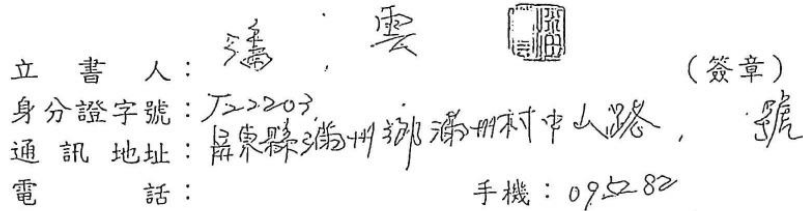 立書人：潘 雲 （簽章）
身分證字號：J22203
通訊地址：屏東縣滿州鄉滿州村中山路 號
電話： 手機：095282